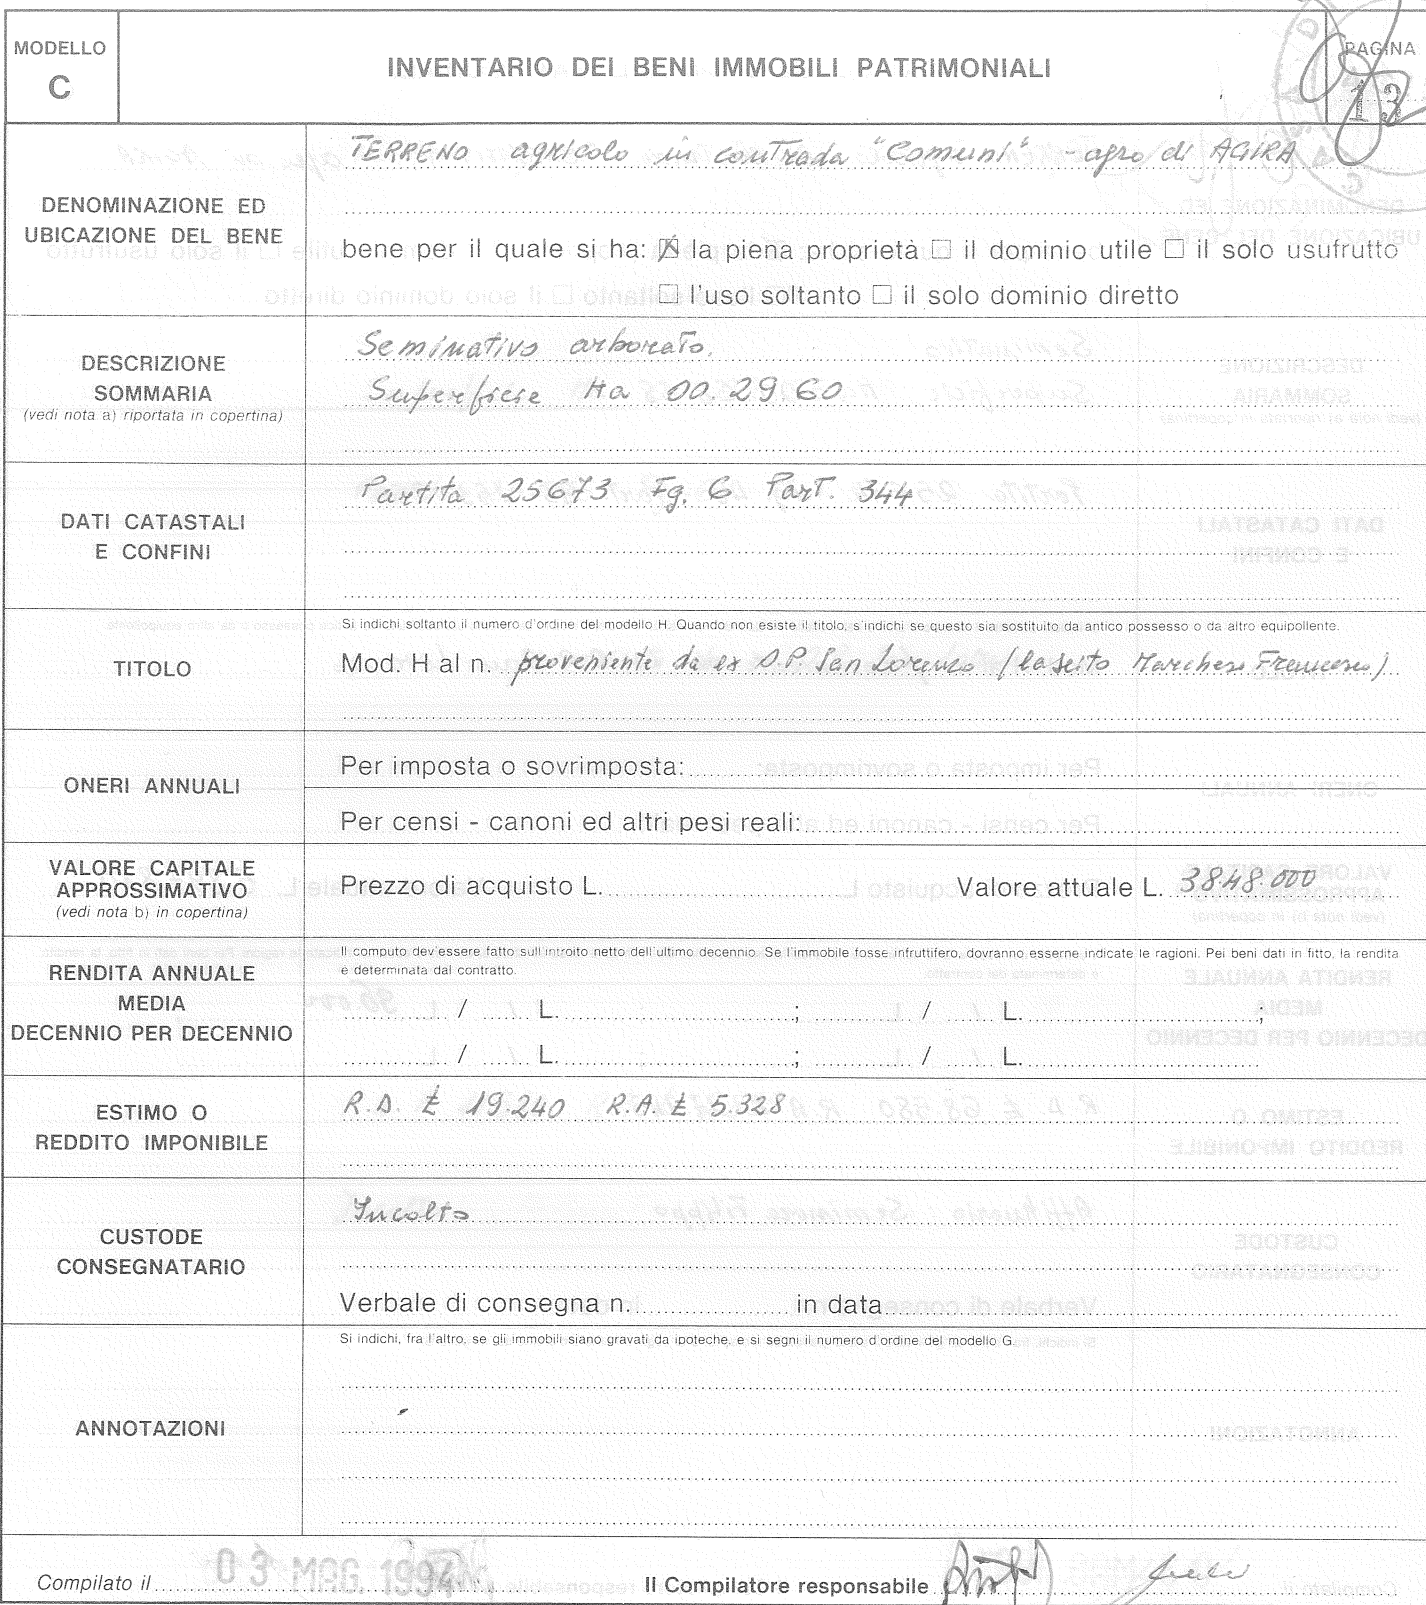 MODELLO
C
INVENTARIO DEI BENI IMMOBILI PATRIMONIALI
PAGINA
13
DENOMINAZIONE ED
UBICAZIONE DEL BENE
TERRENO agricolo in contrada "Comuni" - agro di AGIRA
bene per il quale si ha: ☒ la piena proprietà ☐ il dominio utile ☐ il solo usufrutto
☐ l'uso soltanto ☐ il solo dominio diretto
DESCRIZIONE
SOMMARIA
(vedi nota a) riportata in copertina)
Seminativo arborato.
Superficie Ha 00.29.60
DATI CATASTALI
E CONFINI
Partita 25673 Fg. 6 Part. 344
TITOLO
Si indichi soltanto il numero d'ordine del modello H. Quando non esiste il titolo, s'indichi se questo sia sostituito da antico possesso o da altro equipollente.
Mod. H al n. proveniente da ex O.P. San Lorenzo (lascito Marchese Francesco)
ONERI ANNUALI
Per imposta o sovrimposta:
Per censi - canoni ed altri pesi reali:
VALORE CAPITALE
APPROSSIMATIVO
(vedi nota b) in copertina)
Prezzo di acquisto L. Valore attuale L. 3848.000
RENDITA ANNUALE
MEDIA
DECENNIO PER DECENNIO
Il computo dev'essere fatto sull'introito netto dell'ultimo decennio. Se l'immobile fosse infruttifero, dovranno esserne indicate le ragioni. Pei beni dati in fitto, la rendita
è determinata dal contratto.
/ L. ; / L. ;
/ L. ; / L.
ESTIMO O
REDDITO IMPONIBILE
R.D. £ 19.240 R.A. £ 5.328
CUSTODE
CONSEGNATARIO
Incolto
Verbale di consegna n. in data
ANNOTAZIONI
Si indichi, fra l'altro, se gli immobili siano gravati da ipoteche, e si segni il numero d'ordine del modello G.
Compilato il 03 MAG. 1994 Il Compilatore responsabile